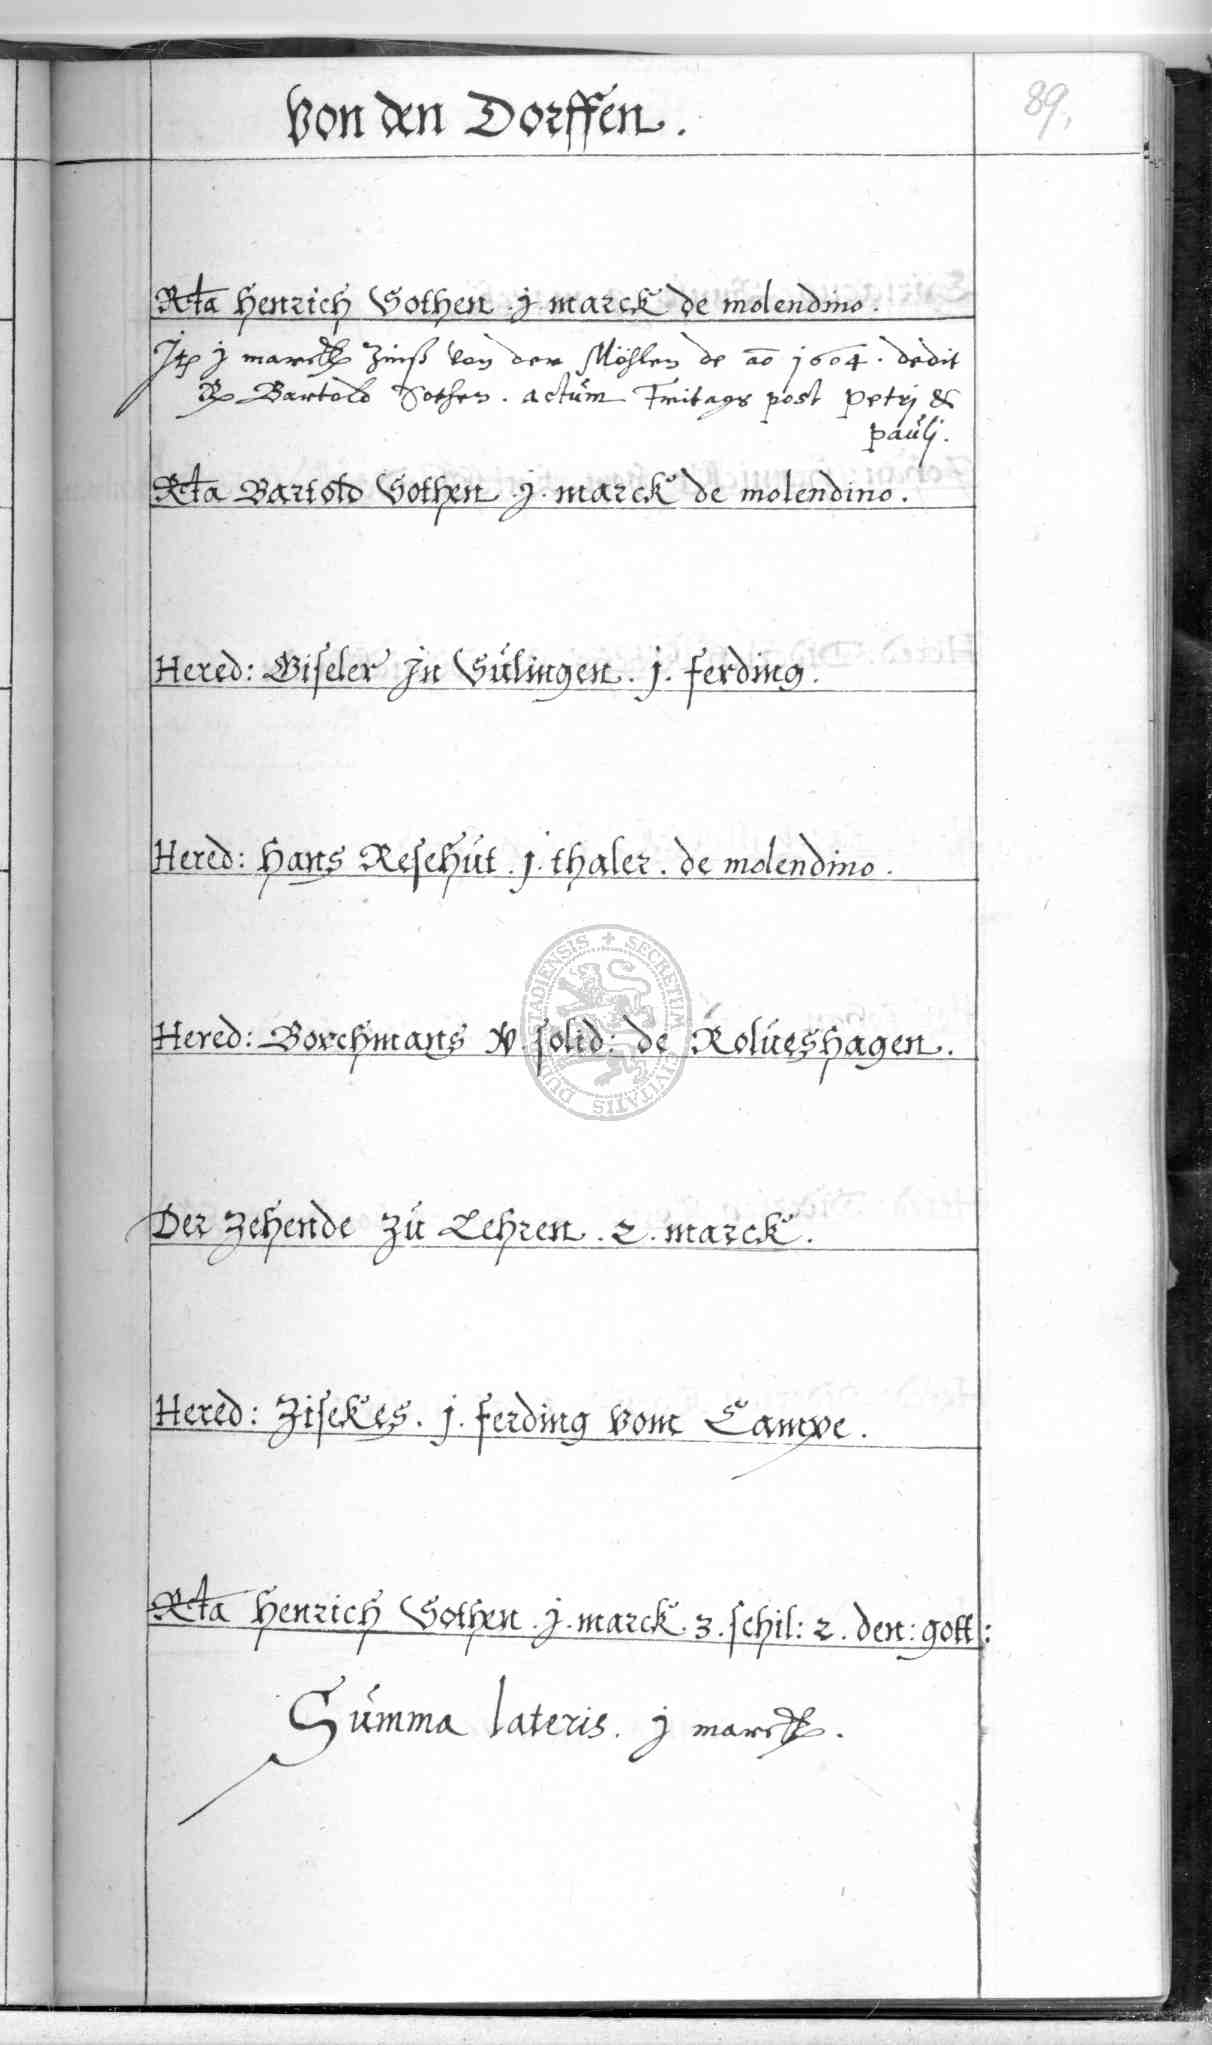 Von den Dorffen.
89.
Rta Henrich Sothen . j . marck de molendino .
Jtp j marck Zinß von der Möhlen de ao 1604 . dedit
Bartold Sothen . actum Freitags post Petrj &
paulj .
Rta Bartold Sothen . j . marck de molendino .
Hered: Giseler Jn Sülingen . j . ferding .
Hered: Hans Resehut . j . thaler . de molendino .
Hered: Borchmans v . solid: de Rolueshagen .
Der Zehende Zu Lehren . 2 . marck .
Hered: Zisekes . j . ferding vom Campe .
Rta Henrich Sothen . j . marck . 3 . schil: 2 . den: gott:
Summa lateris . j marck .
SECRETUM CIVITATIS DUDERSTADIENSIS